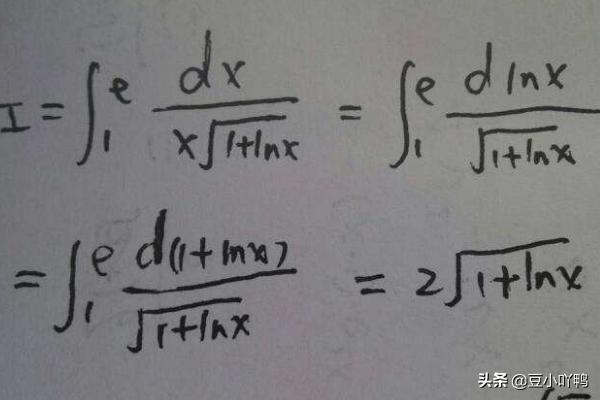 I = ∫₁ᵉ dx / x√(1+lnx) = ∫₁ᵉ d lnx / √(1+lnx)
= ∫₁ᵉ d(1+lnx) / √(1+lnx) = 2√(1+lnx)
头条 @豆小吖鸭